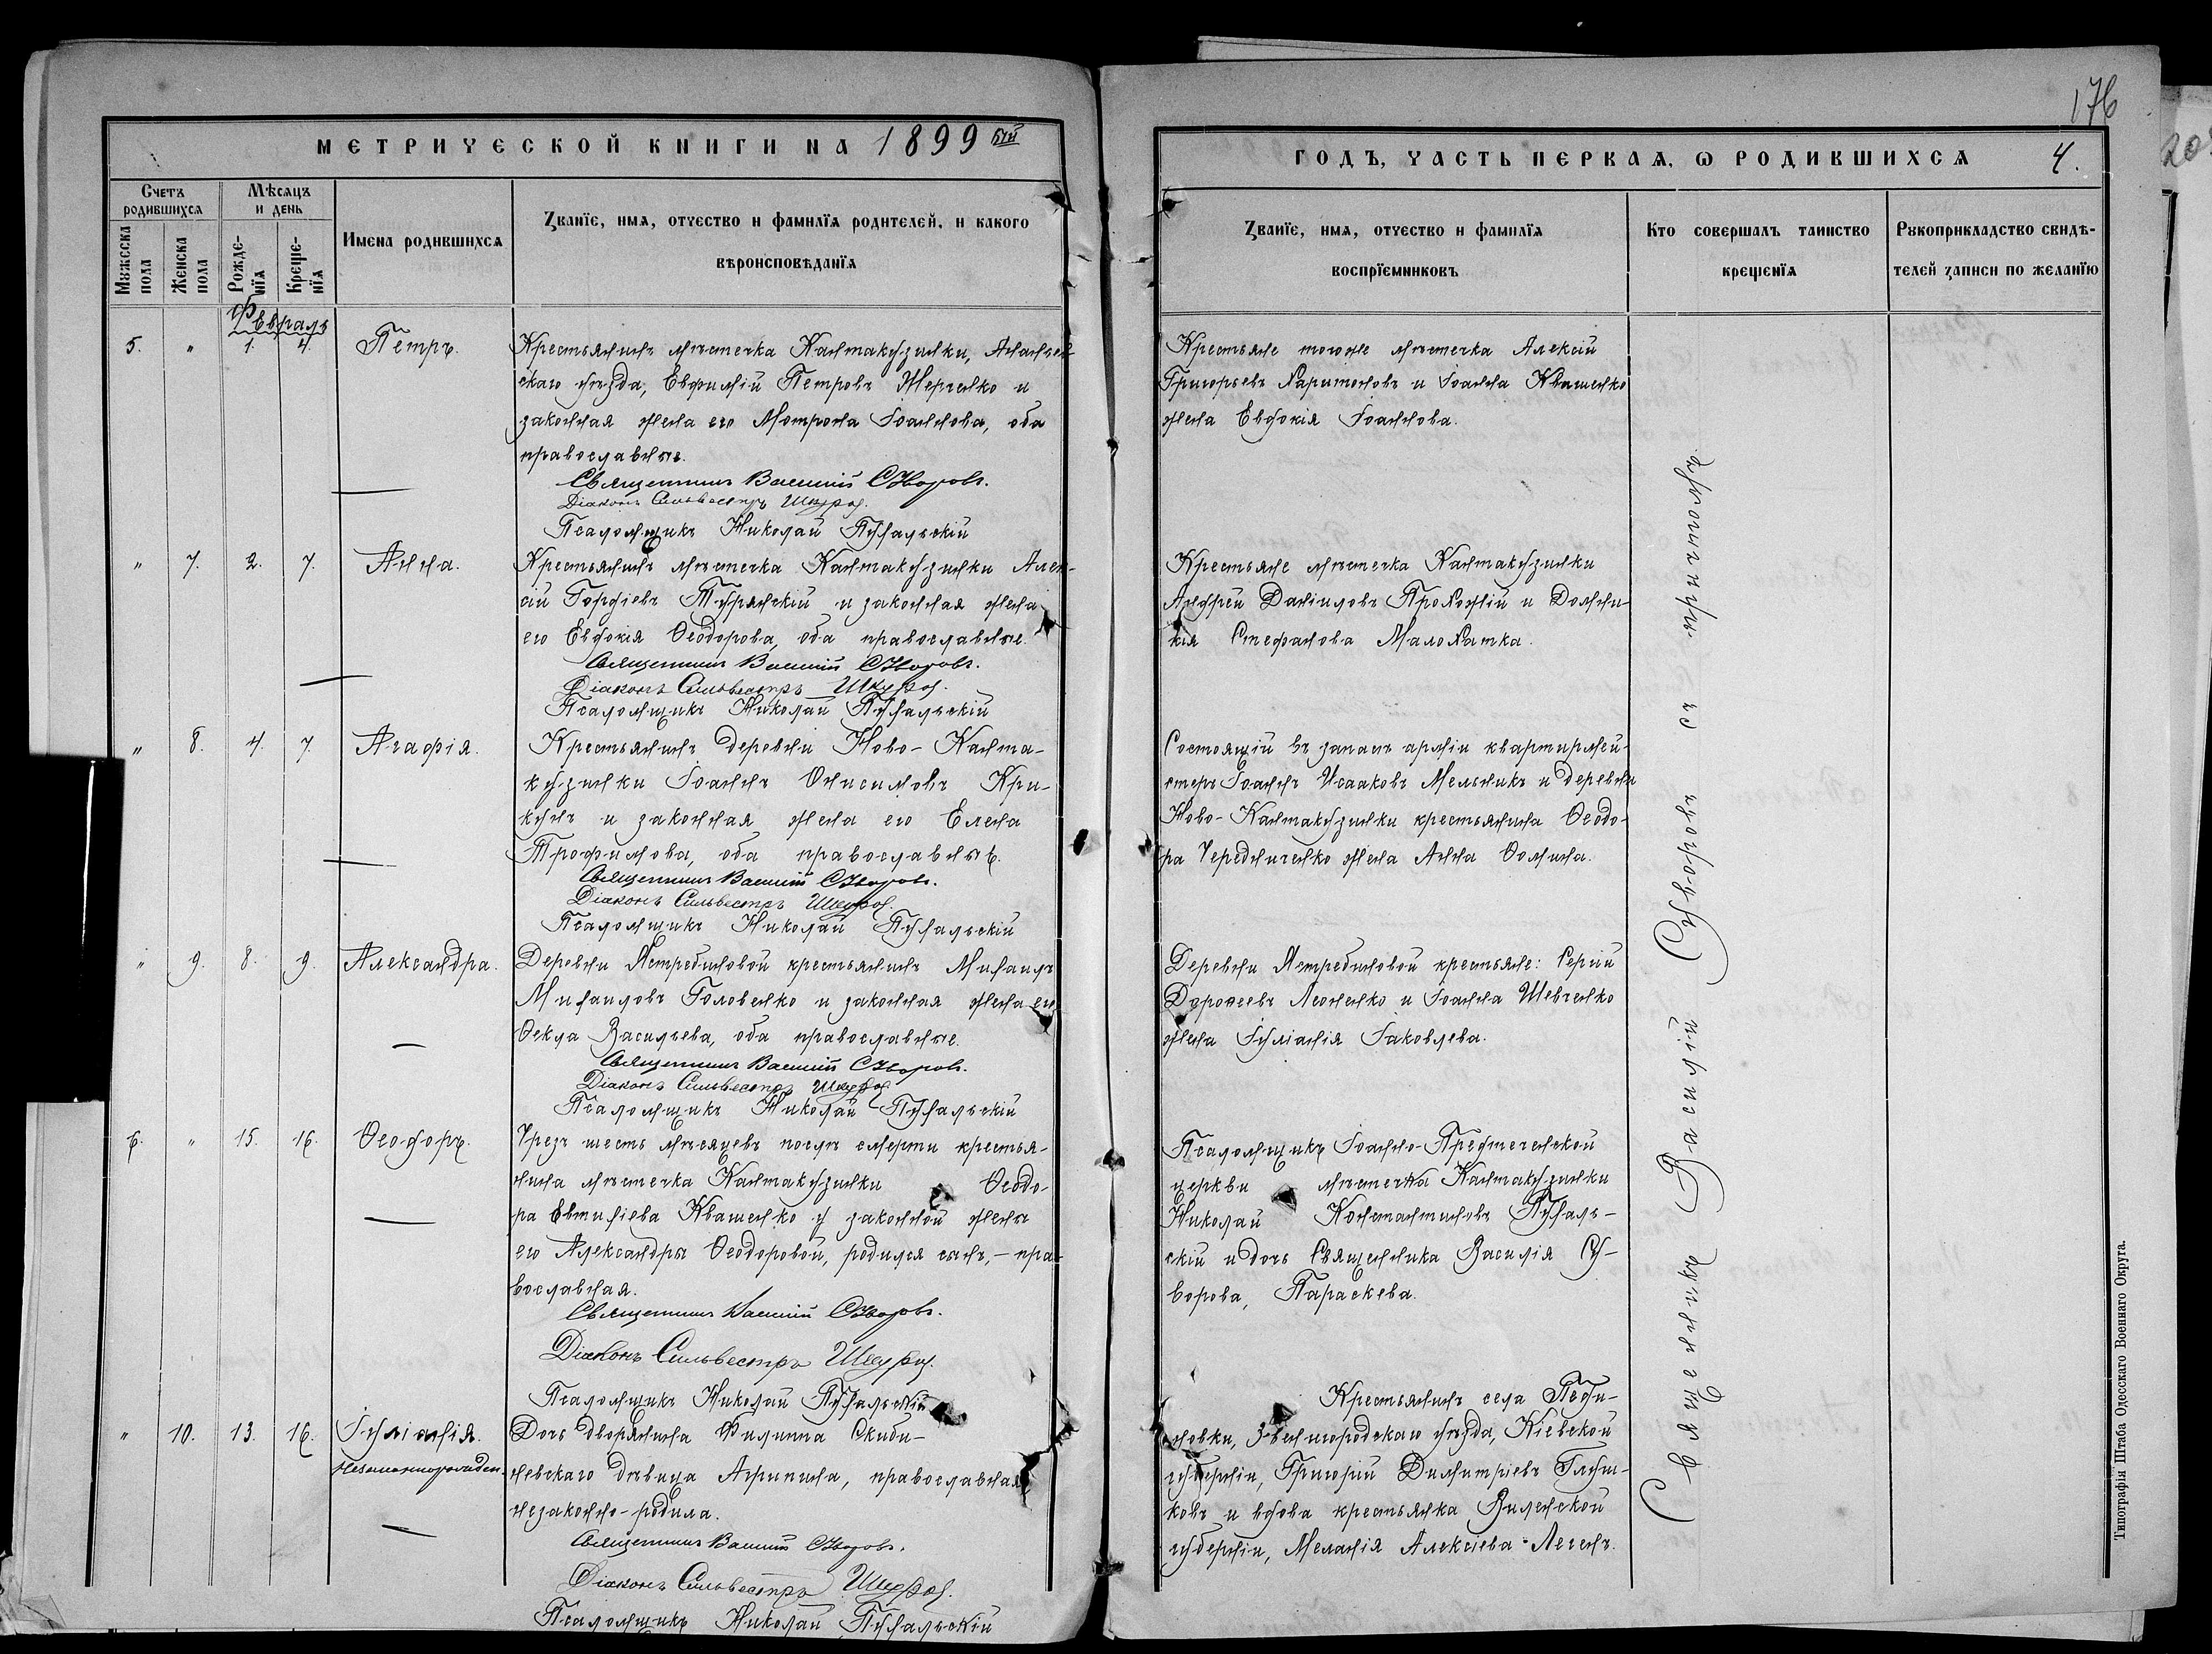 176
МЕТРИЧЕСКОЙ КНИГИ НА 1899ый
Счетъ родившихся
Мужеска пола
Женска пола
Мѣсяцъ и день
Рожде-
нія
Креще-
нія
Имена родившихся
Званіе, имя, отчество и фамилія родителей, и какого
вѣроисповѣданія
Февраль
5. " 1. 4. Петръ.
Крестьянинъ мѣстечка Кантакузинки, Ананьев-
скаго уѣзда, Евфимій Петровъ Жерченко и
законная жена его Мотрона Іоаннова, оба
православные.
Священникъ Василій Суворовъ.
Діаконъ Сильвестръ
Псаломщикъ Николай Пухальскій
" 7. 2. 7. Анна.
Крестьянинъ мѣстечка Кантакузинки Алек-
сій Гордіевъ Турянскій и законная жена
его Евдокія Ѳеодорова, оба православные.
Священникъ Василій Суворовъ.
Діаконъ Сильвестръ
Псаломщикъ Николай Пухальскій
" 8. 4. 7. Агафія.
Крестьянинъ деревни Ново-Канта-
кузинки Іоаннъ Онисимовъ Кри-
кунъ и законная жена его Елена
Трофимова, оба православные.
Священникъ Василій Суворовъ.
Діаконъ Сильвестръ
Псаломщикъ Николай Пухальскій
" 9. 8. 9. Александра.
Деревни Ястребиновой крестьянинъ Михаилъ
Михаиловъ Головенко и законная жена его
Ѳекла Васильева, оба православные.
Священникъ Василій Суворовъ.
Діаконъ Сильвестръ
Псаломщикъ Николай Пухальскій
6. " 15. 16. Ѳеодоръ.
Чрезъ шесть мѣсяцевъ послѣ смерти крестья-
нина мѣстечка Кантакузинки Ѳеодо-
ра Евтихіева Квашенко у законной жены
его Александры Ѳеодоровой, родился сынъ, - пра-
вославная.
Священникъ Василій Суворовъ.
Діаконъ Сильвестръ
Псаломщикъ Николай Пухальскій
" 10. 13. 16. Іуліанія.
незаконнорожден.
Дочь дворянина Филиппа Скиби-
невскаго дѣвица Агрипина, православная
незаконно-родила.
Священникъ Василій Суворовъ.
Діаконъ Сильвестръ
Псаломщикъ Николай Пухальскій
ГОДЪ, ЧАСТЬ ПЕРВАЯ, Ѡ РОДИВШИХСЯ 4.
Званіе, имя, отчество и фамилія
воспріемниковъ
Кто совершалъ таинство
крещенія
Рукоприкладство свидѣ-
телей записи по желанію
Крестьяне тогоже мѣстечка Алексій
Григорьевъ Харитоновъ и Іоанна Квашенко
жена Евдокія Іоаннова.
Крестьяне мѣстечка Кантакузинки
Андрей Даниловъ Прохожій и Домни-
кія Стефанова Малохатка.
Состоящій въ запасѣ арміи квартирмей-
стеръ Іоаннъ Исааковъ Мельникъ и деревни
Ново-Кантакузинки крестьянина Ѳеодо-
ра Чередниченко жена Анна Ѳомина.
Деревни Ястребиновой крестьяне: Сергій
Дороѳеевъ Леоненко и Іоанна Шевченко
жена Іуліанія Іаковлева.
Псаломщикъ Іоанно-Предтеченской
церкви мѣстечка Кантакузинки
Николай Константиновъ Пухаль-
скій и дочь Священника Василія Су-
ворова, Параскева.
Крестьянинъ села
новки, Звенигородскаго уѣзда, Кіевской
губерніи, Григорій Димитріевъ Глуш-
ковъ и вдова крестьянка Виленской
губерніи, Меланія Алексіева
Священникъ Василій Суворовъ съ причтомъ.
Типографія Штаба Одесскаго Военнаго Округа.